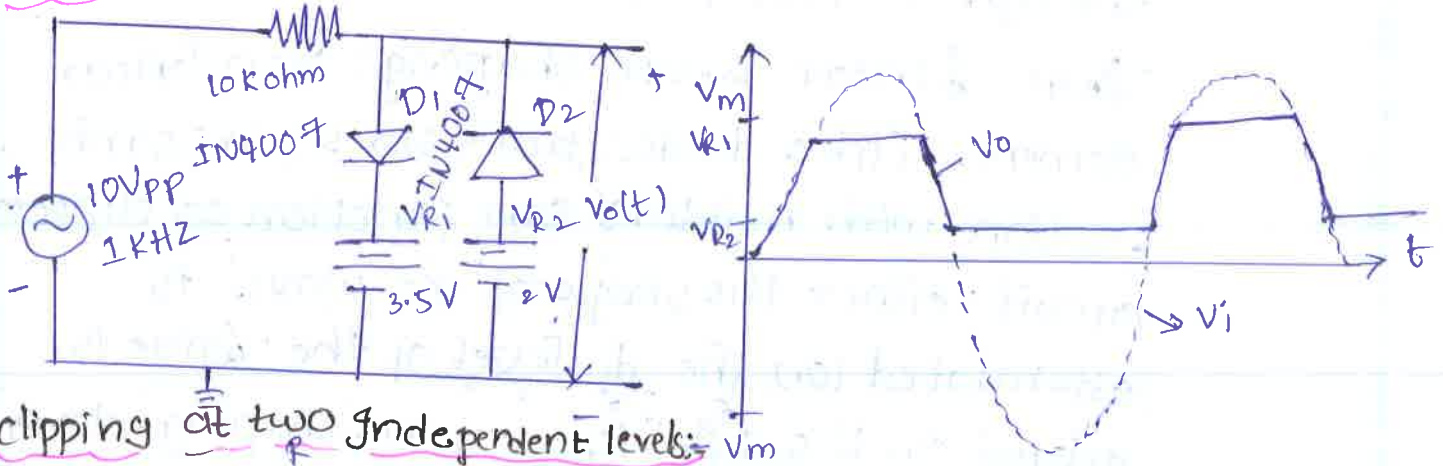 10K ohm
IN4007
D1
IN4007
D2
+
10Vpp
1KHZ
-
VR1
VR2
Vo(t)
+
3.5V
2V
-
Vm
VR1
VR2
Vo
t
Vi
- Vm
clipping at two Independent levels:-